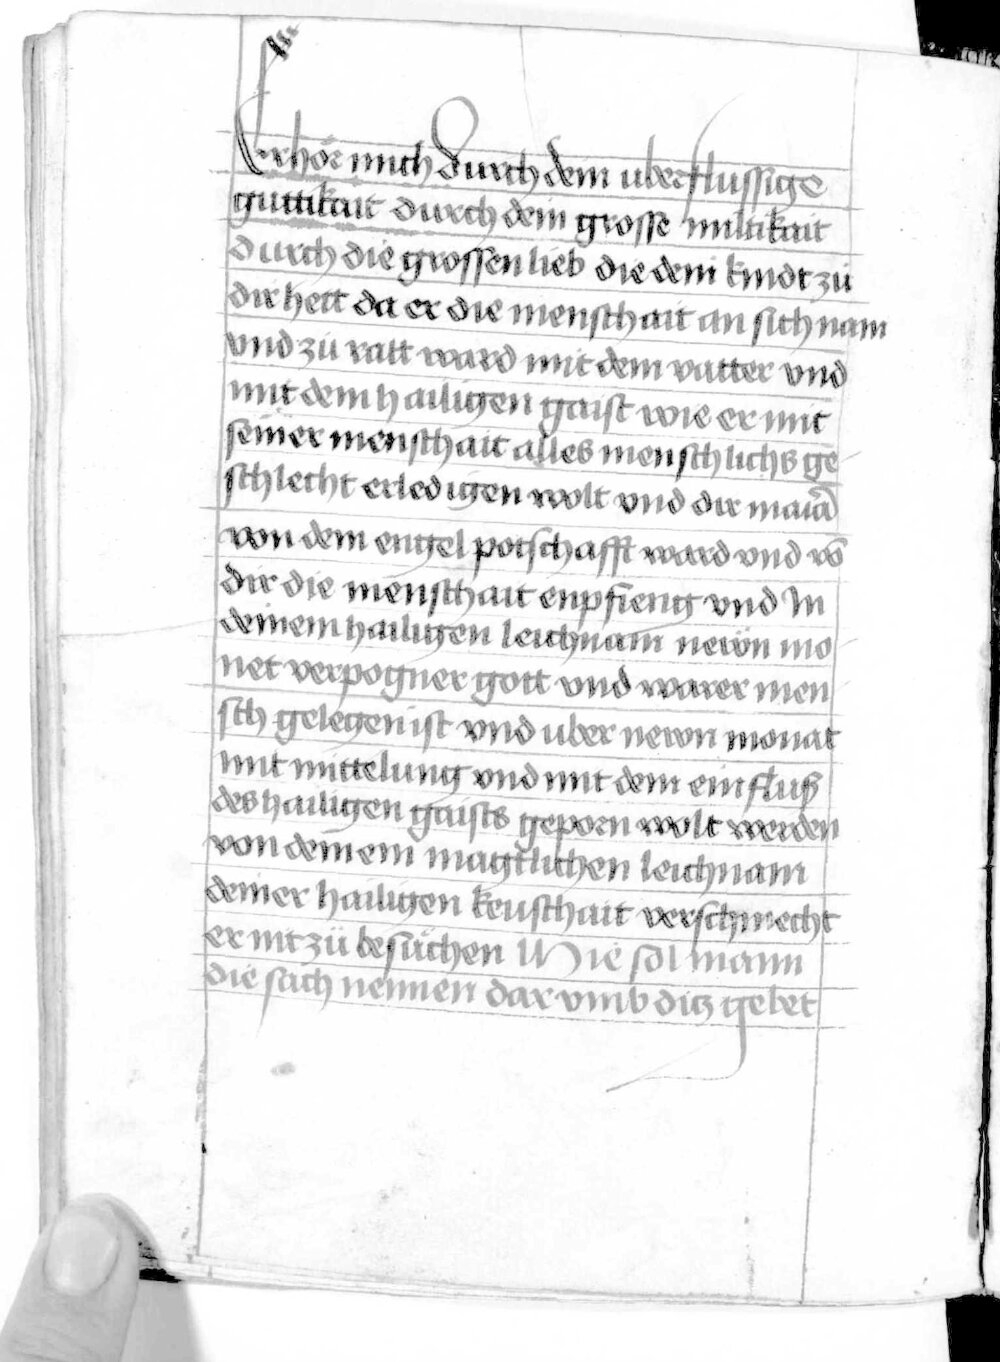 Erhör mich durch dein uberflussige
guttikait durch dein grosse miltikait
durch die grossen lieb die dein kindt zü
dir hett da er die menschait an sich nam
vnd zü ratt ward mit dem vatter vnd
mit dem hailigen gaist wie er mit
seiner menschait alles menschlichs ge
schlecht erledigen wolt vnd dir maiā
von dem engel potschafft ward vnd vō
dir die menschait enpfieng vnd In
deinem hailigen leichnam newn mo
net verpogner gott vnd warer men
sch gelegen ist vnd uber newn monat
mit mittelung vnd mit dem einfluß
des hailigen gaists geporn wolt werden
von deinem magtlichen leichnam
deiner hailigen keuschait verschmecht
er nit zü besüchen Wie sol mann
die sach nennen dar vmb ditz gebet